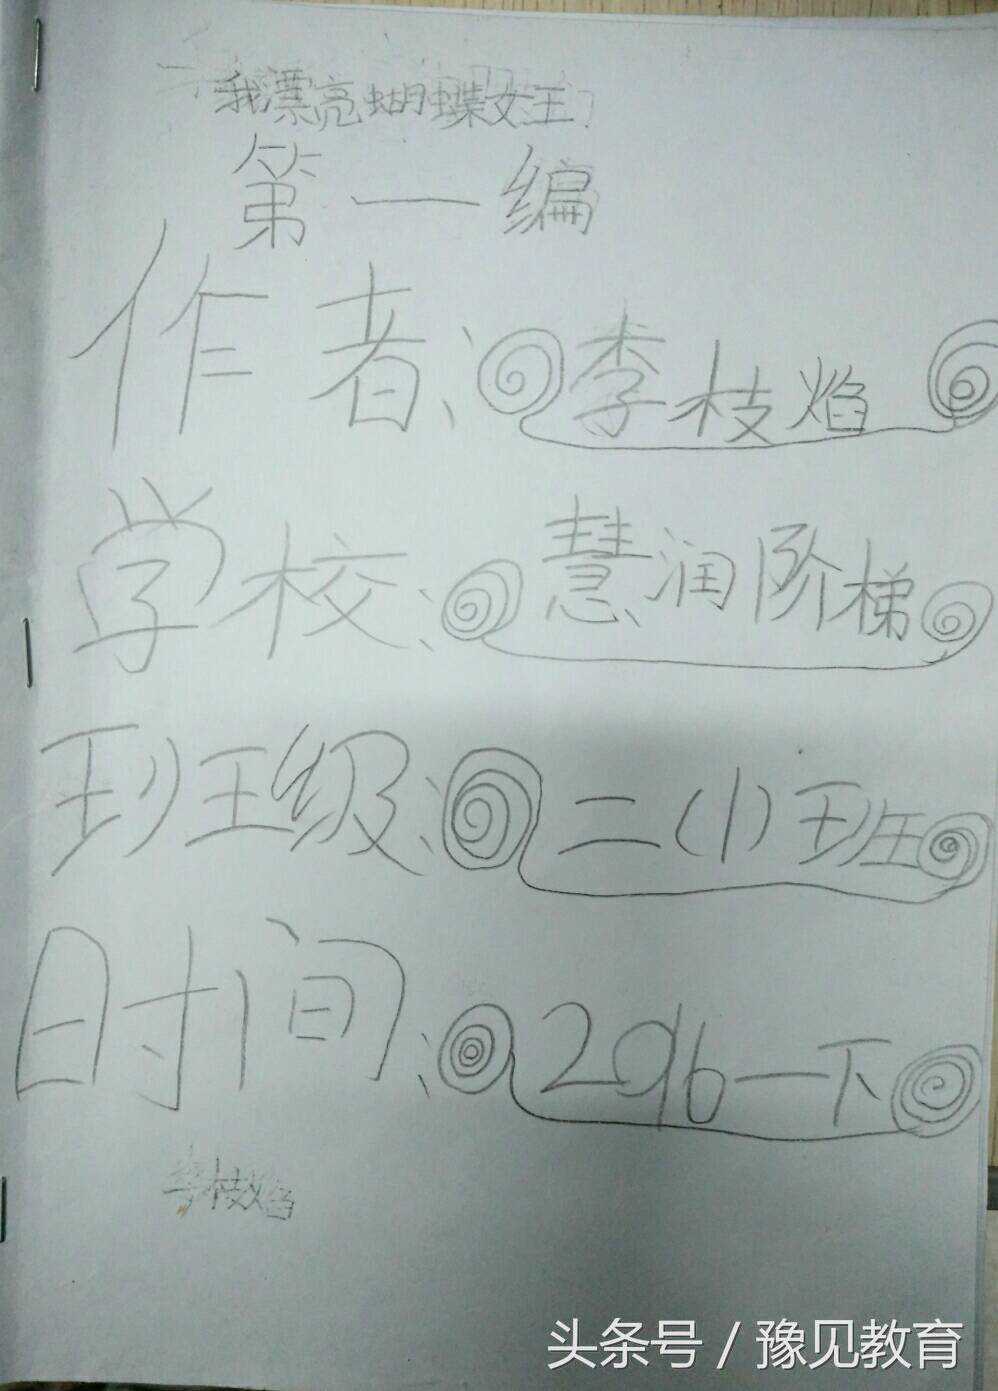 我漂亮蝴蝶女王
第一编
作者：李枝焰
学校：慧润阶梯
班级：二(1)班
时间：2016一下
李枝焰
头条号 / 豫见教育